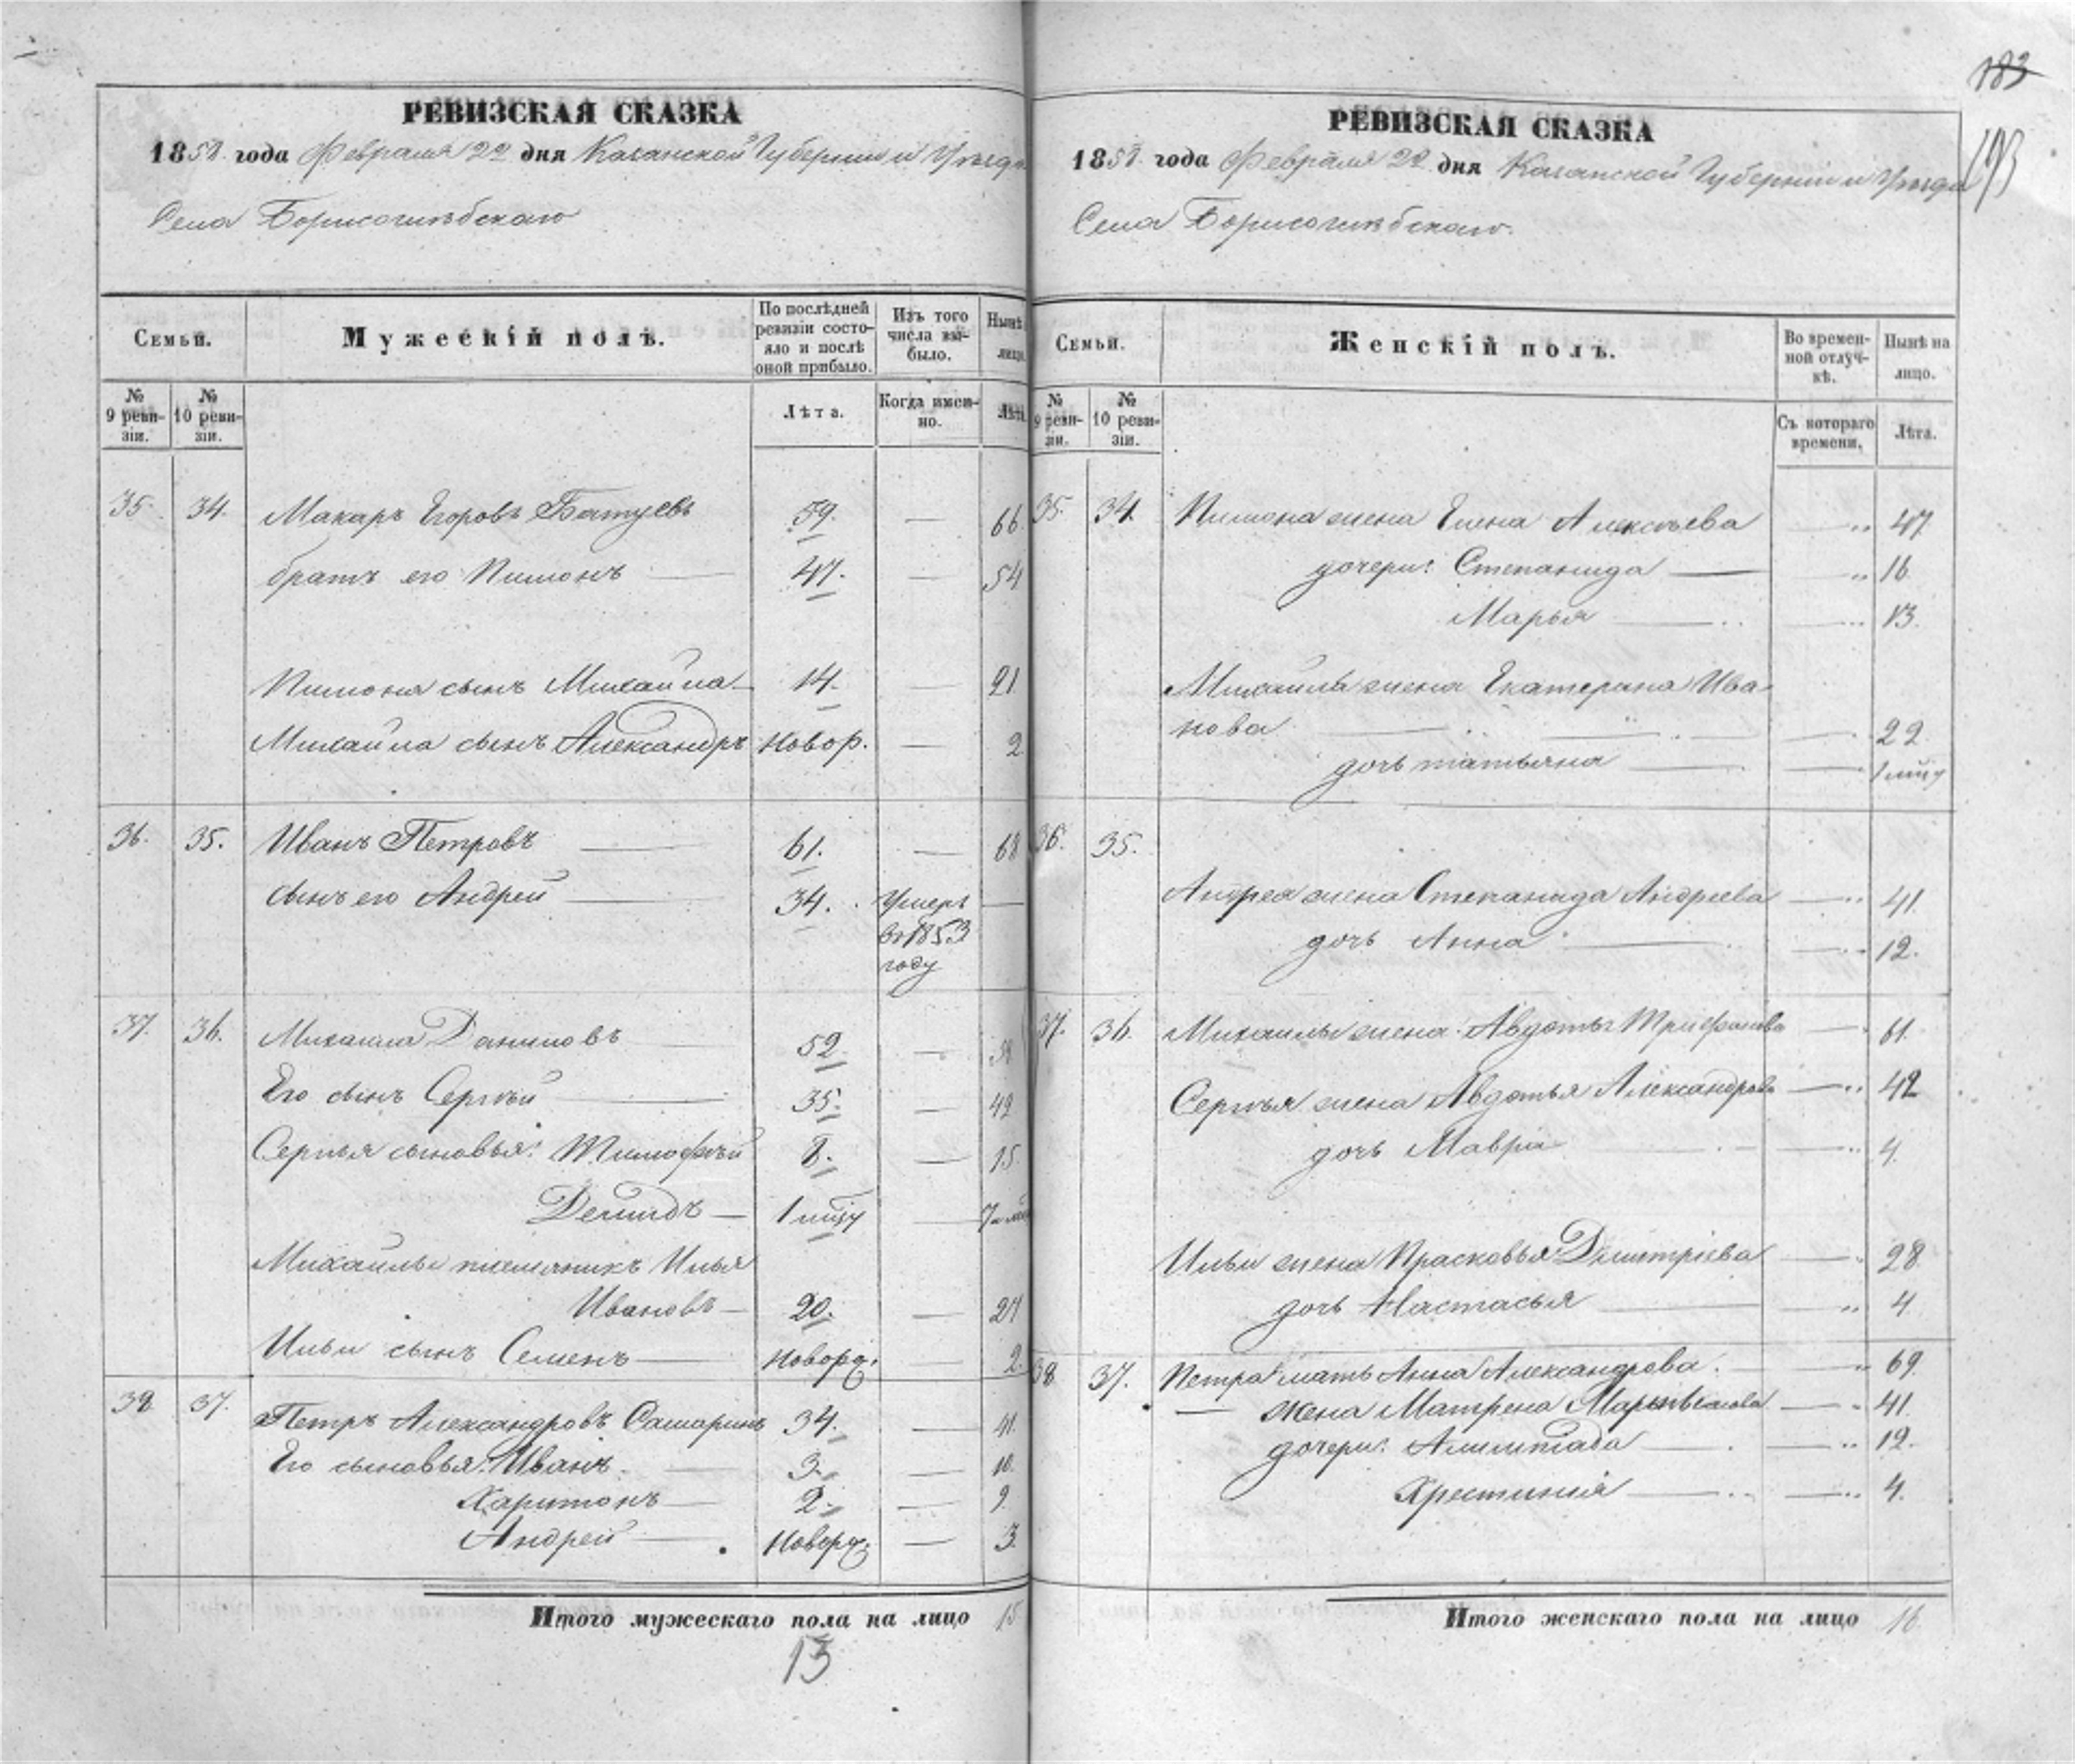 183
193
РЕВИЗСКАЯ СКАЗКА
1858 года Февраля 22 дня Казанской Губернии и Уѣзда
Села Борисоглѣбскаго
Семьи.
Мужескій полъ.
По послѣдней ревизіи состо-
яло и послѣ
оной прибыло.
Изъ того
числа вы-
было.
Нынѣ
лицо.
№
9 реви-
зіи.
№
10 реви-
зіи.
Лѣта.
Когда имен-
но.
Лѣта
35. 34. Макаръ Егоровъ Батуевъ 59. — 66
братъ его Пимонъ — 47. — 54
Пимона сынъ Михайла — 14. — 21
Михайла сынъ Александръ Новор. — 2
36. 35. Иванъ Петровъ — 61. — 68
сынъ его Андрей — 34. Умеръ —
въ 1853
году
37. 36. Михаила Даниловъ — 52. —
Его сынъ Сергѣй — 35. — 42
Сергѣя сыновья: Тимофѣй 8. — 15
Демидъ — 1 мцу —
Михайлы племянникъ Илья
Ивановъ — 20. — 27
Ильи сынъ Семенъ — Новорд. — 2.
38. 37. Петръ Александровъ Сашаринъ 34. — 41.
Его сыновья: Иванъ — 3. — 10.
Харитонъ — 2. — 9.
Андрей — Новорд. — 3.
Итого мужескаго пола на лицо 15
13
РЕВИЗСКАЯ СКАЗКА
1858 года Февраля 22 дня Казанской Губернии и Уѣзда
Села Борисоглѣбскаго.
Семьи.
Женскій полъ.
Во времен-
ной отлуч-
кѣ.
Нынѣ на
лицо.
№
9 реви-
зіи.
№
10 реви-
зіи.
Съ котораго
времени.
Лѣта.
35. 34. Пимона жена Елена Алексѣева — 47
дочери: Степанида — 16
Марья — 13.
Михайлы жена Екатерина Ива-
нова — 22
дочь татьяна — 1 мцу
36. 35.
Андрея жена Степанида Андреева — 41.
дочь Анна — 12.
37. 36. Михаилы жена Авдотья — 61.
Сергѣя жена Авдотья Александрова — 42
дочь Мавра — 4.
Ильи жена Прасковья Дмитріева — 28
дочь Настасья — 4.
38 37. Петра мать Анна Александрова — 69.
— жена Матрена — 41.
дочери: — 12.
Хрестинія — 4.
Итого женскаго пола на лицо 16